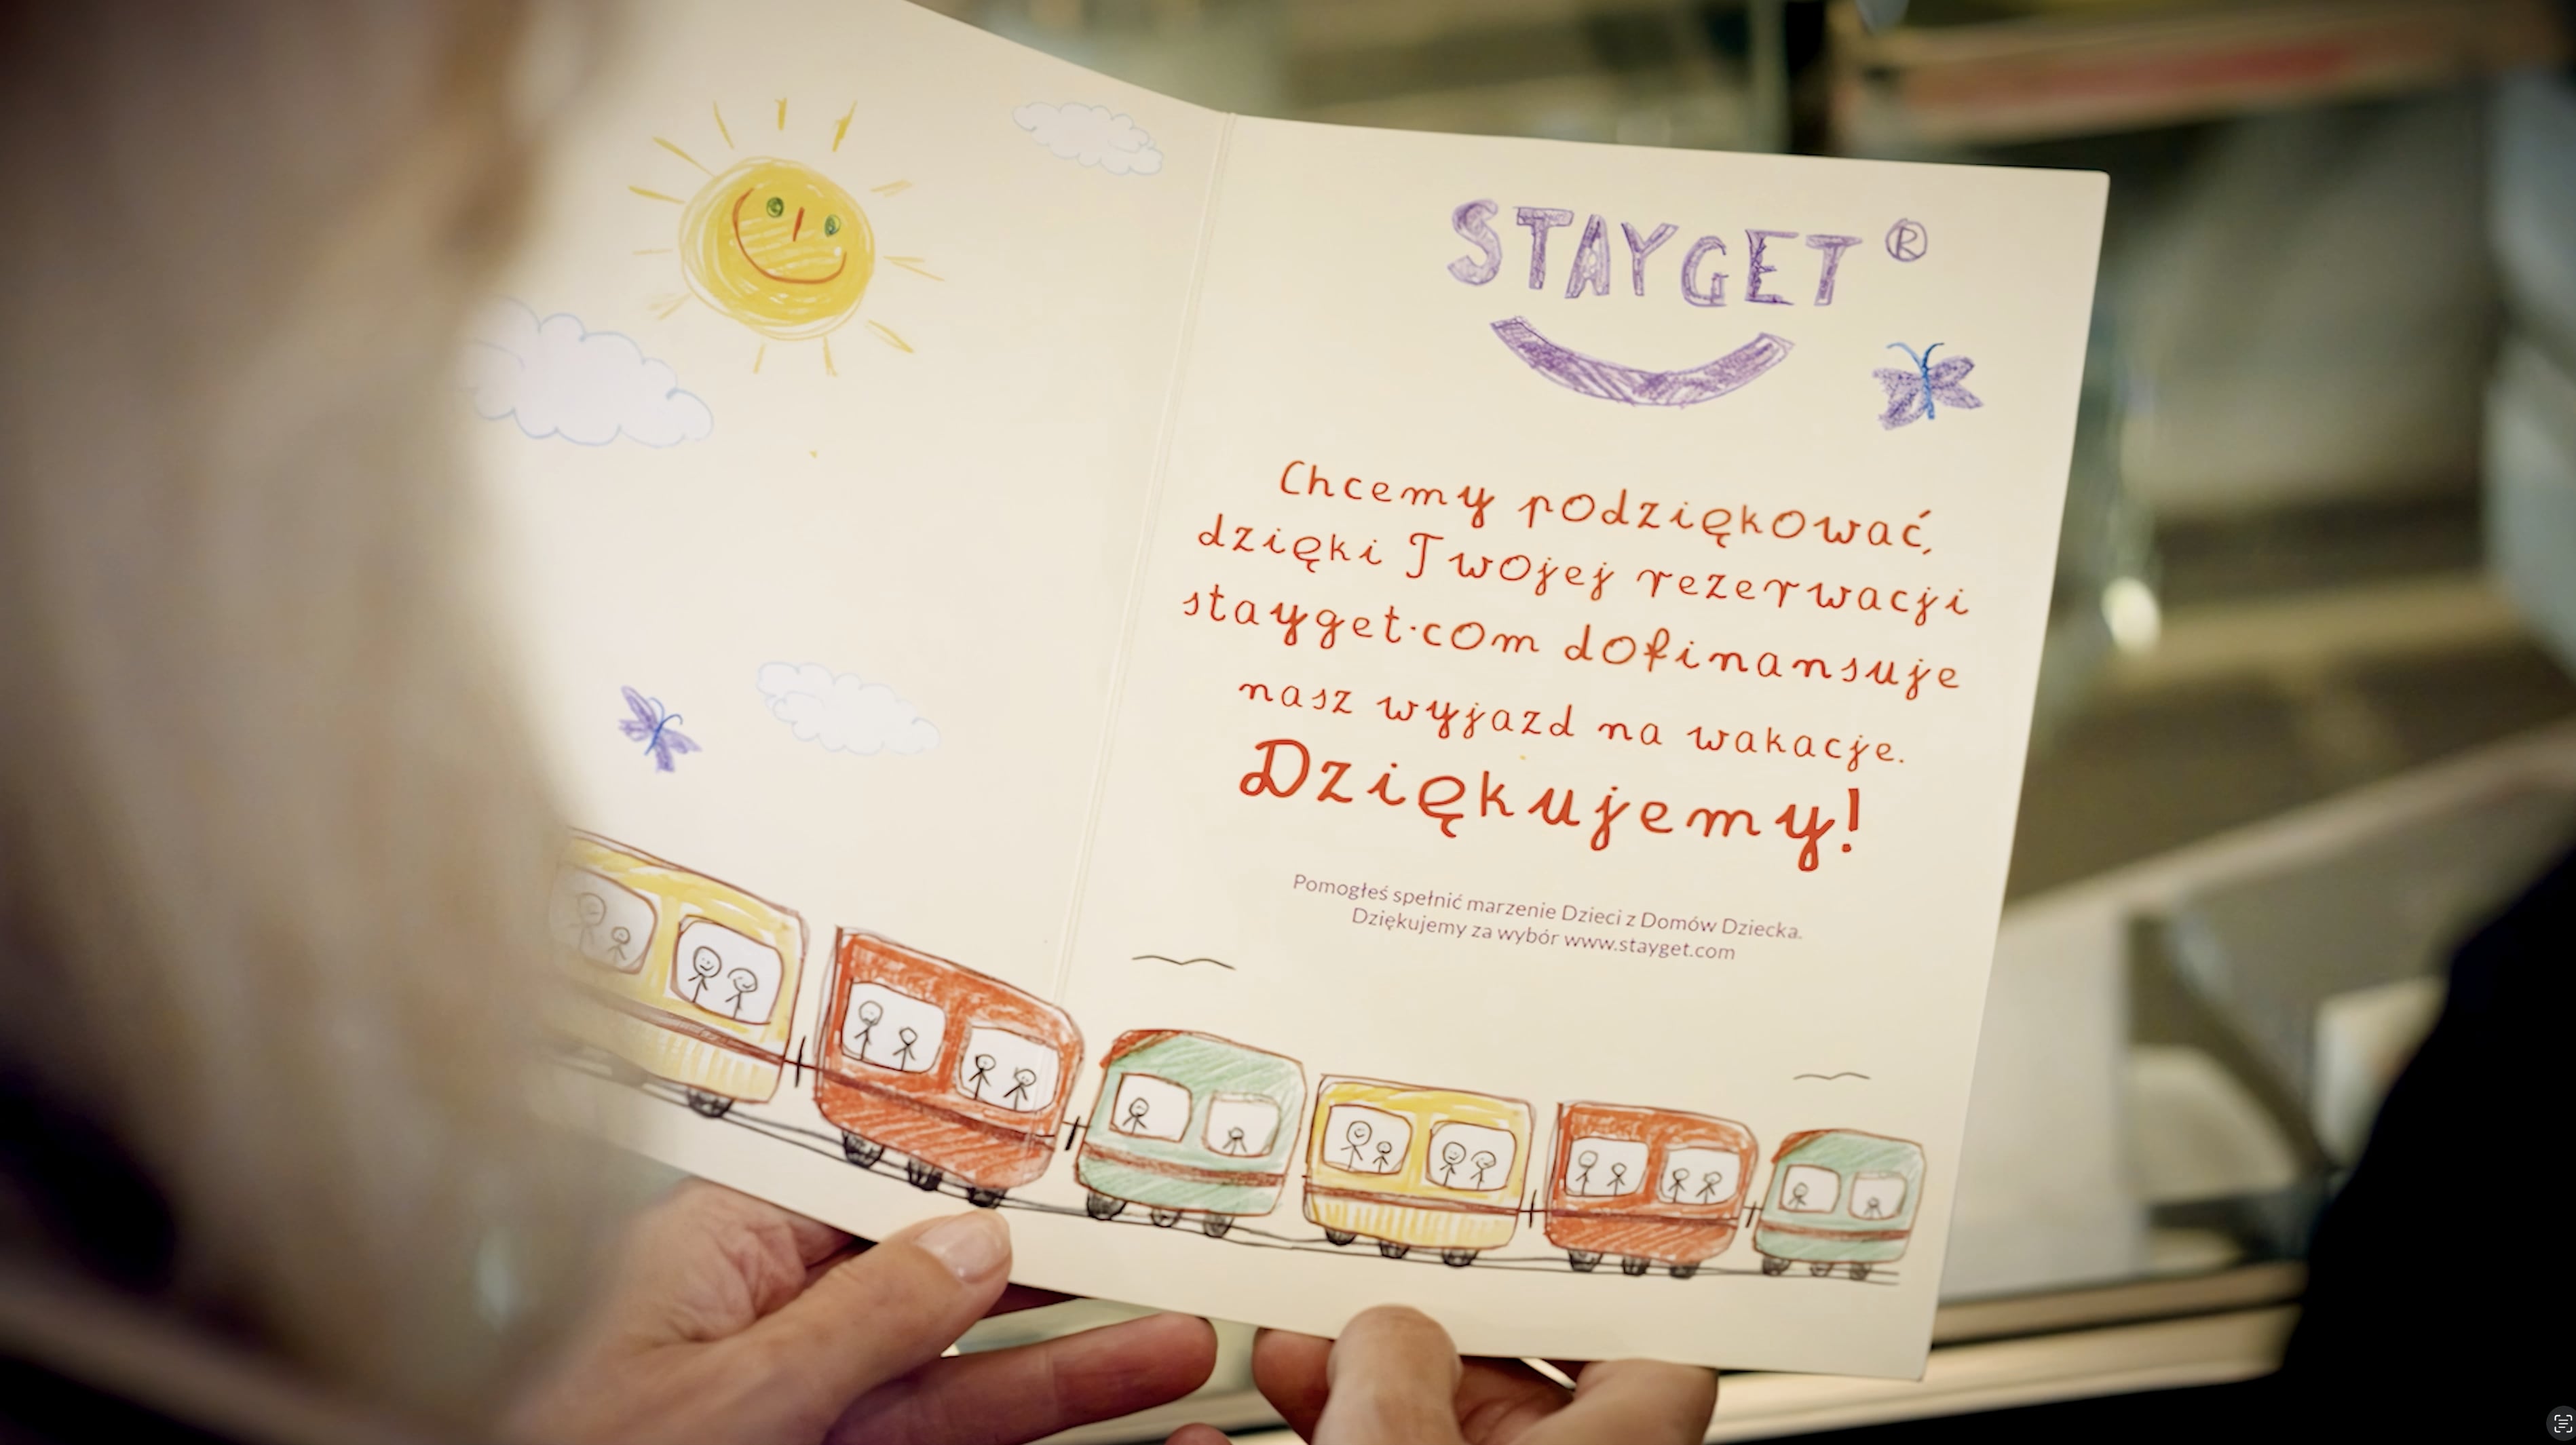 STAYGET ®
Chcemy podziękować,
dzięki Twojej rezerwacji
stayget.com dofinansuje
nasz wyjazd na wakacje.
Dziękujemy!
Pomogłeś spełnić marzenie Dzieci z Domów Dziecka.
Dziękujemy za wybór www.stayget.com